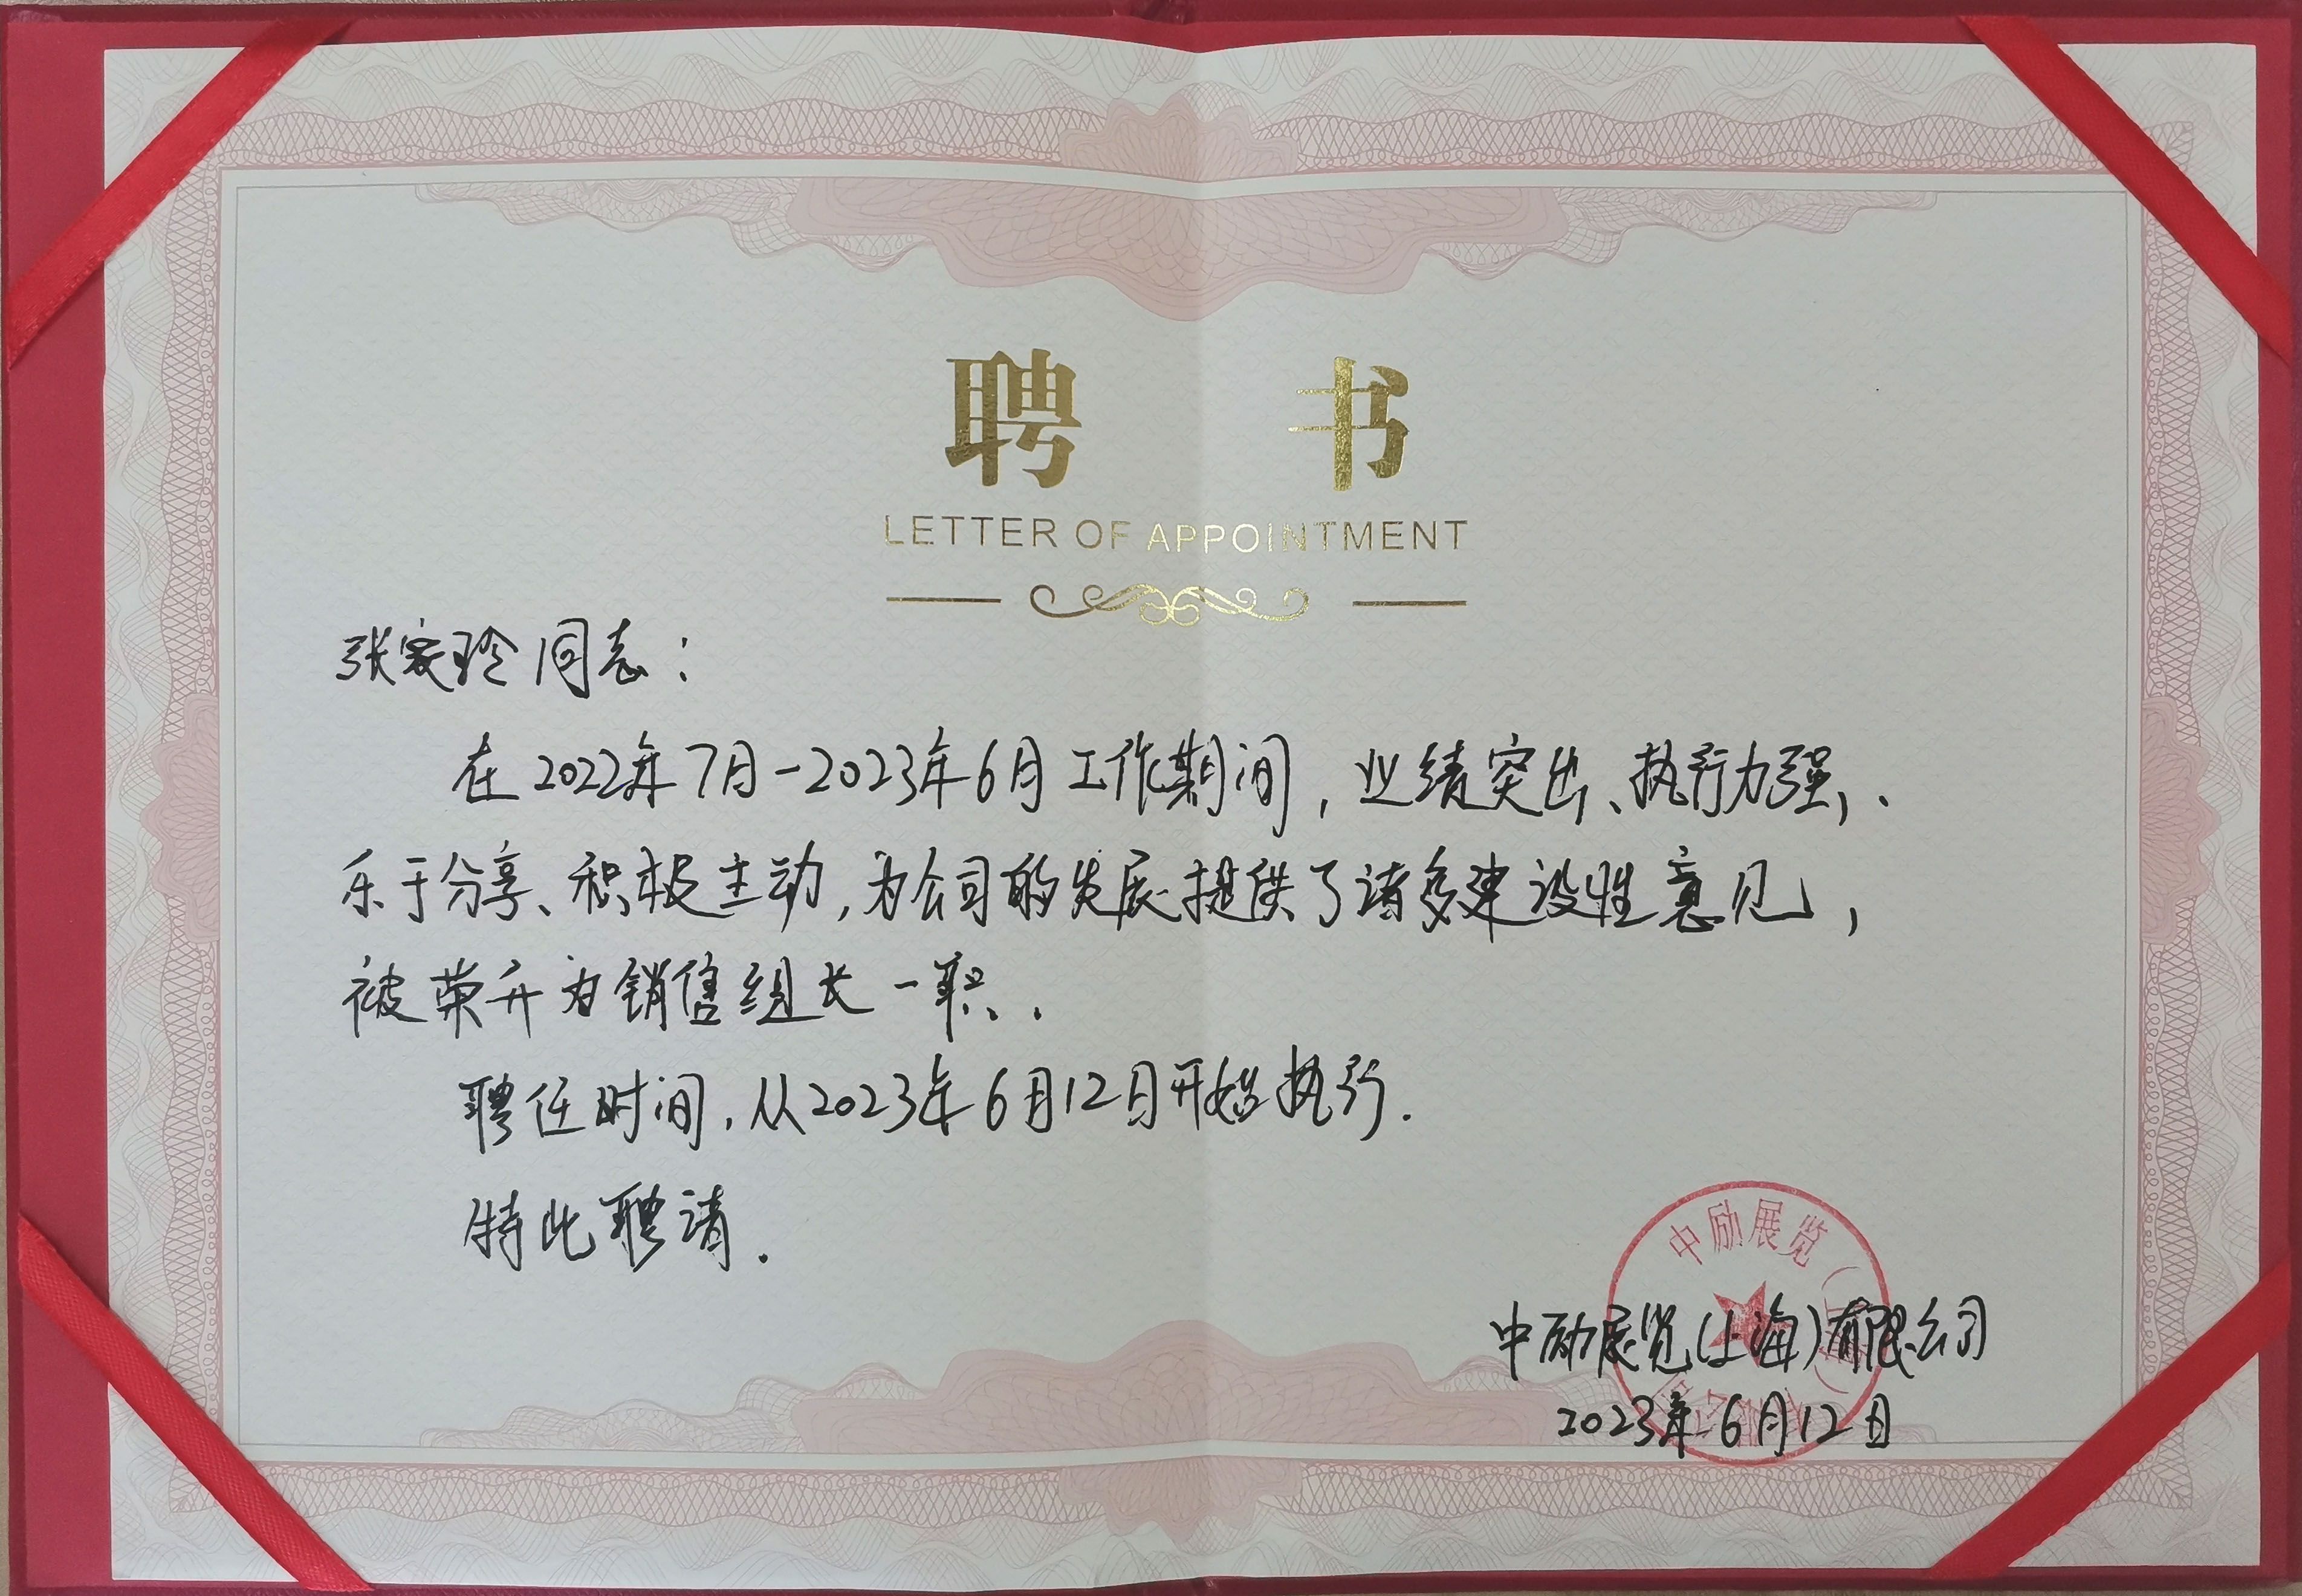 聘 书
LETTER OF APPOINTMENT
张家玲同志：
在2022年7月-2023年6月工作期间，业绩突出、执行力强、
乐于分享、积极主动，为公司的发展提供了诸多建设性意见，
被荣升为销售组长一职。
聘任时间，从2023年6月12日开始执行.
特此聘请.
中励展览（
中励展览(上海)有限公司
2023年6月12日